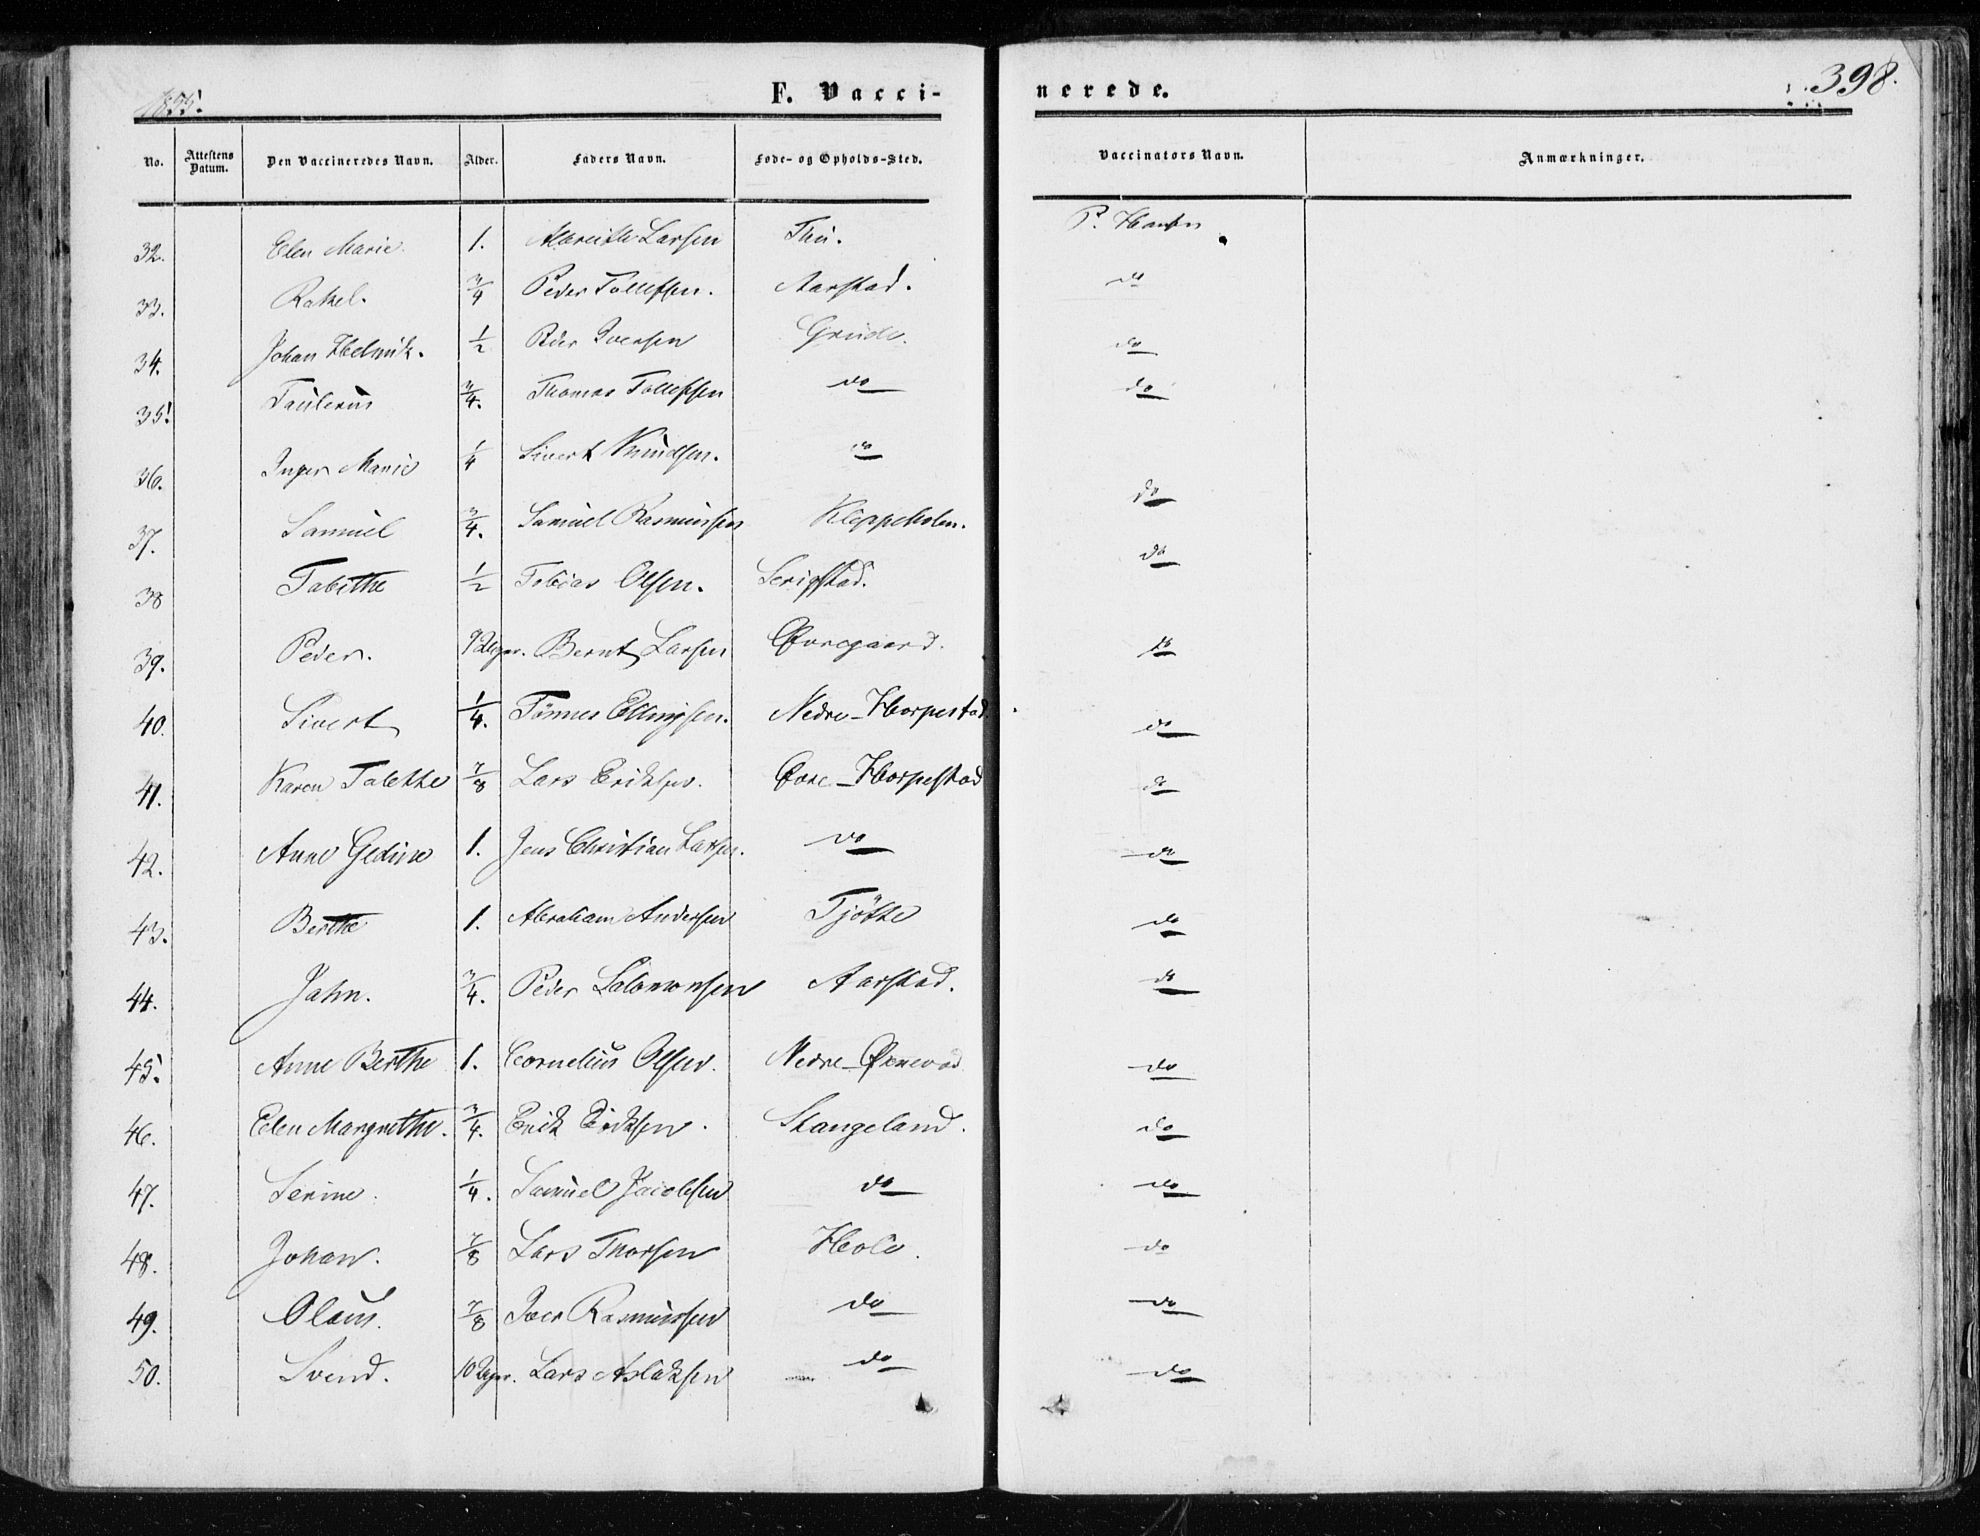 1855.
F. Vacci-
nerede.
398.
No. Attestens Datum. Den Vaccineredes Navn. Alder. Faders Navn. Føde- og Opholds-Sted. Vaccinators Navn. Anmærkninger.
32. Elen Marie. 1. Larsen Thu. P. Hansen
33. Rakel. 3/4 Peder Tollefsen. Aarstad. do
34. Johan Helmik. 1/2 Peder Iversen Grude. do
35. Taulerus 3/4. Thomas Tollefsen do do
36. Inger Marie 1/4 Sivert Knudsen. do
37. Samuel 3/4. Samuel Rasmussen Kleppeholen. do
38 Tabithe 1/2 Tobias Olsen. Serigstad. do
39. Peder. 9 Uger. Bernt Larsen Øvregaard. do
40. Sivert 1/4. Tönnes Ellingsen. Nedre-Horpestad. do
41. Karen Talethe 7/8 Lars Eriksen. Øvre-Horpestad do
42. Anne Gedine 1. Jens Christian Larsen. do do
43. Berthe 1. Abraham Andersen Tjötte do
44. Jahn. 3/4. Peder Salomonsen Aarstad. do
45. Anne Berthe 1. Cornelius Olsen. Nedre-Øxnevad do
46. Elen Margrethe. 3/4. Erik Eriksen. Stangeland. do
47. Serine. 1/4. Samuel Jacobsen do do
48. Johan. 7/8 Lars Thorsen Hole. do
49. Olaus. 7/8 Iver Rasmussen do do
50. Svend. 10 Uger. Lars Aslaksen do do